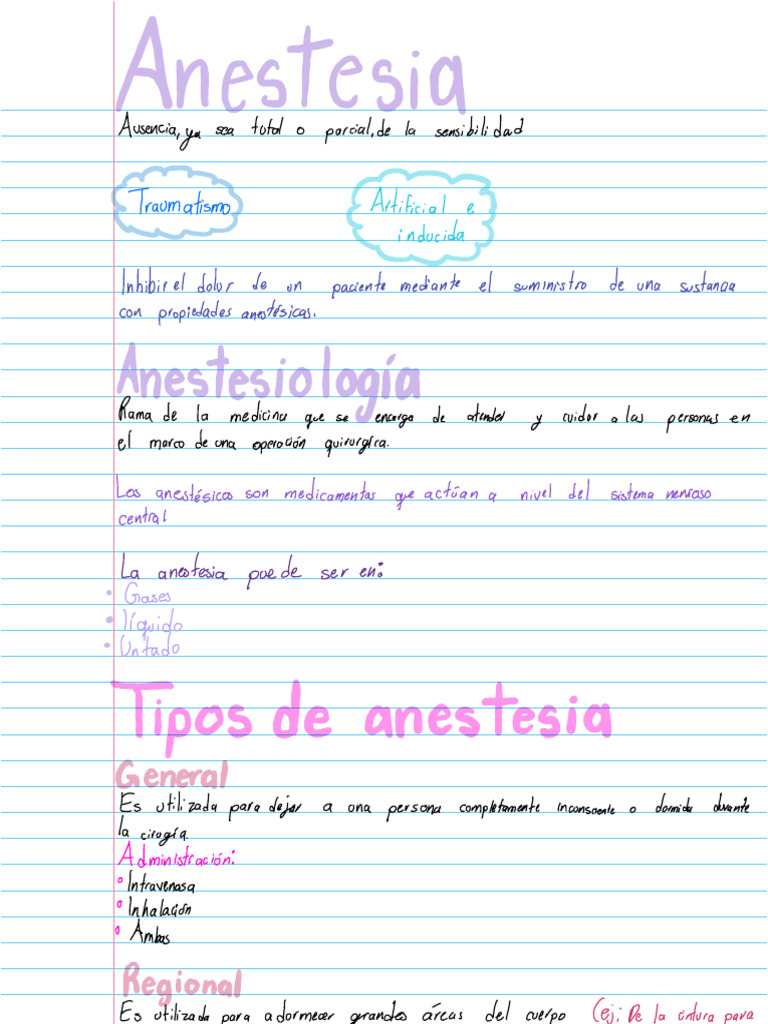 Anestesia
Ausencia, ya sea total o parcial, de la sensibilidad
Traumatismo
Artificial e
inducida
Inhibir el dolor de un paciente mediante el suministro de una sustancia
con propiedades anestésicas.
Anestesiología
Rama de la medicina que se encarga de atender y cuidar a las personas en
el marco de una operación quirurgica.
Los anestésicos son medicamentos que actúan a nivel del sistema nervioso
central
La anestesia puede ser en:
• Gases
• líquido
• Untado
Tipos de anestesia
General
Es utilizada para dejar a una persona completamente inconsciente o dormida durante
la cirugía.
Administración:
° Intravenosa
° Inhalación
° Ambas
Regional
Es utilizada para adormecer grandes áreas del cuerpo (ej: De la cintura para